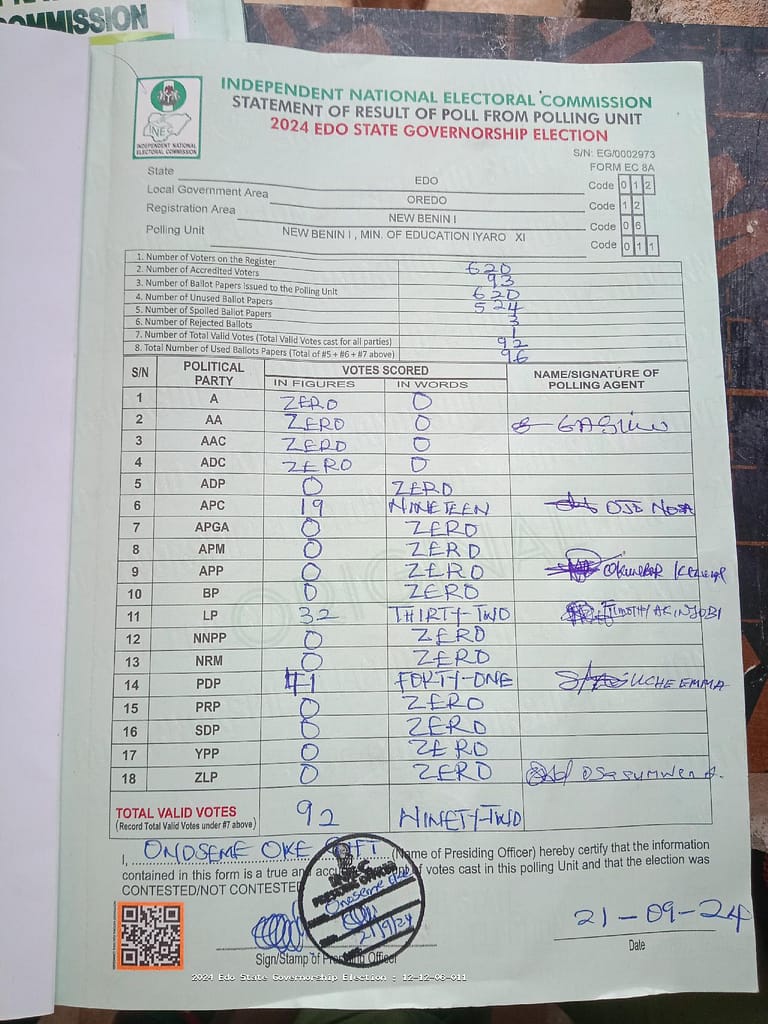 OMMISSION
INDEPENDENT NATIONAL ELECTORAL COMMISSION
STATEMENT OF RESULT OF POLL FROM POLLING UNIT
2024 EDO STATE GOVERNORSHIP ELECTION
INEC
INDEPENDENT NATIONAL
ELECTORAL COMMISSION
S/N: EG/0002973
FORM EC 8A
State EDO Code 0 1 2
Local Government Area OREDO Code 1 2
Registration Area NEW BENIN I Code 0 6
Polling Unit NEW BENIN I , MIN. OF EDUCATION IYARO XI Code 0 1 1
1. Number of Voters on the Register 620
2. Number of Accredited Voters 93
3. Number of Ballot Papers Issued to the Polling Unit 620
4. Number of Unused Ballot Papers 524
5. Number of Spoiled Ballot Papers 3
6. Number of Rejected Ballots 1
7. Number of Total Valid Votes (Total Valid Votes cast for all parties) 92
8. Total Number of Used Ballots Papers (Total of #5 + #6 + #7 above) 96
S/N POLITICAL PARTY VOTES SCORED NAME/SIGNATURE OF POLLING AGENT
IN FIGURES IN WORDS
1 A ZERO 0
2 AA ZERO 0
3 AAC ZERO 0
4 ADC ZERO 0
5 ADP 0 ZERO
6 APC 19 NINETEEN OJO NOSA
7 APGA 0 ZERO
8 APM 0 ZERO
9 APP 0 ZERO
10 BP 0 ZERO
11 LP 32 THIRTY-TWO TIMOTHY AKINJOBI
12 NNPP 0 ZERO
13 NRM 0 ZERO
14 PDP 41 FORTY-ONE UCHE EMMA
15 PRP 0 ZERO
16 SDP 0 ZERO
17 YPP 0 ZERO
18 ZLP 0 ZERO
TOTAL VALID VOTES 92 NINETY-TWO
(Record Total Valid Votes under #7 above)
I, ONOSEME OKE GIFT (Name of Presiding Officer) hereby certify that the information
contained in this form is a true and of votes cast in this polling Unit and that the election was
CONTESTED/NOT CONTESTED
INEC
PRESIDING OFFICER
Onoseme
21/9/24
21-09-24
Sign/Stamp of Presiding Officer Date
2024 Edo State Governorship Election : 12-12-06-011